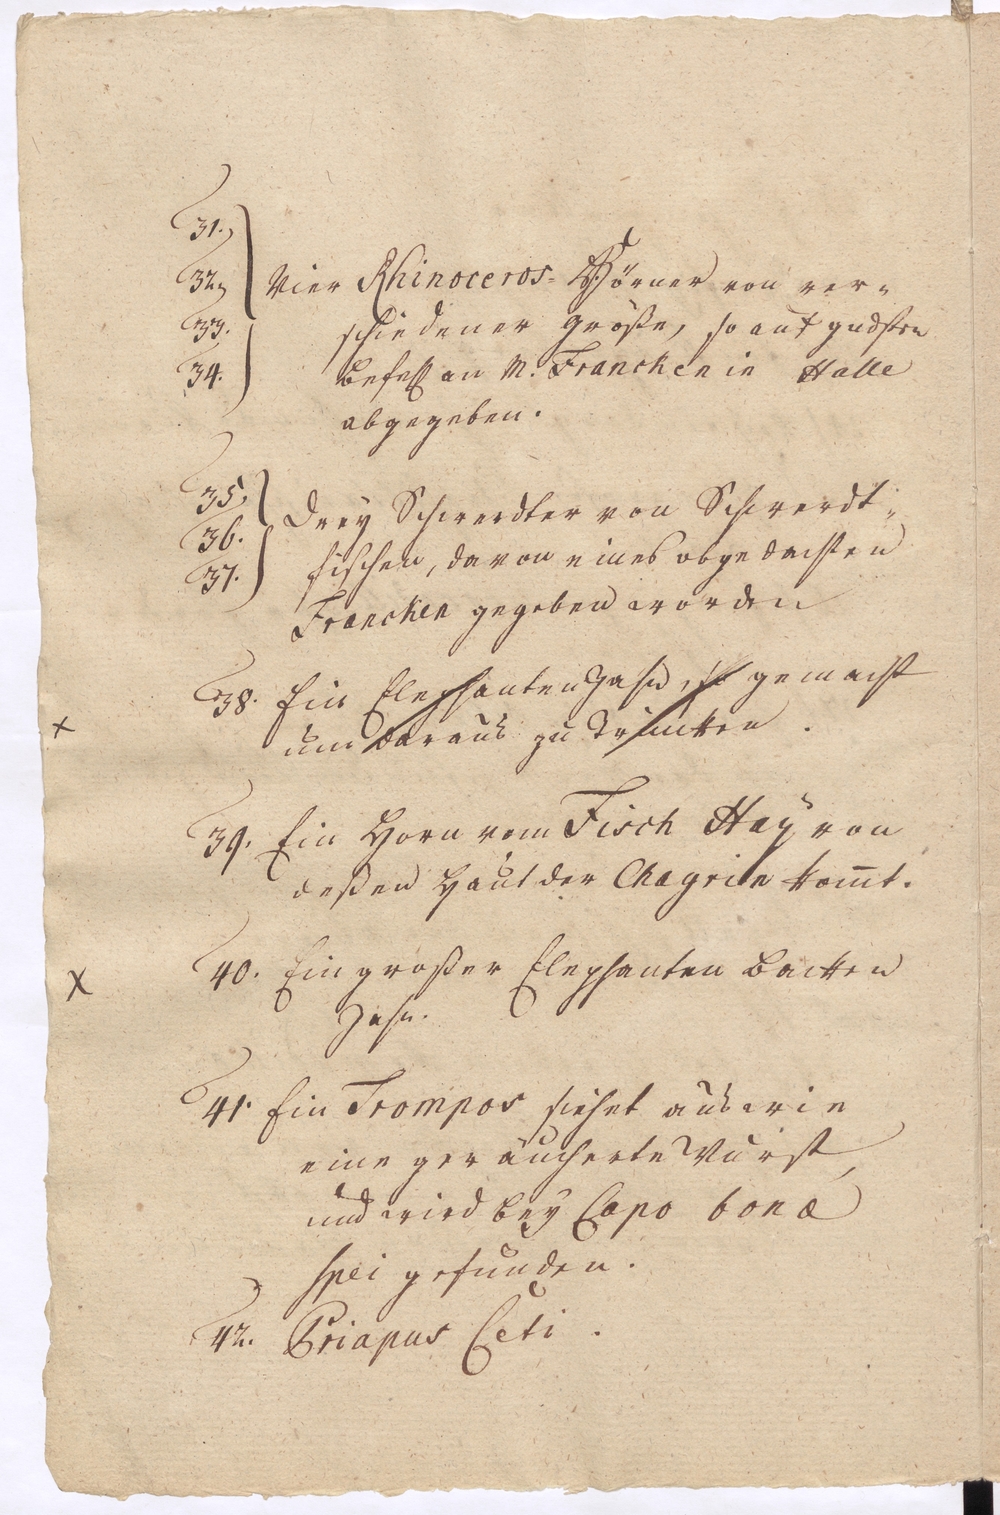 31.
32. Vier Rhinoceros-Hörner von ver-
33. schiedener größe, so auf gndsten
34. befehl an M. Francken in Halle
abgegeben.
35. Drey Schwerdter von Schwerdt-
36.
37. fischen, davon eines obgedachten
Francken gegeben worden
38. Ein Elephanten Zahn, so gemacht
x um daraus zu Trincken.
39. Ein Horn vom Fisch Hay von
deßen Haut der Chagrin kom̅t.
x 40. Ein großer Elephanten backen
Zahn.
41. Ein Trompos siehet aus wie
eine geräucherte Wurst,
und wird bey Capo bonæ
spei gefunden.
42. Priapus Ceti.